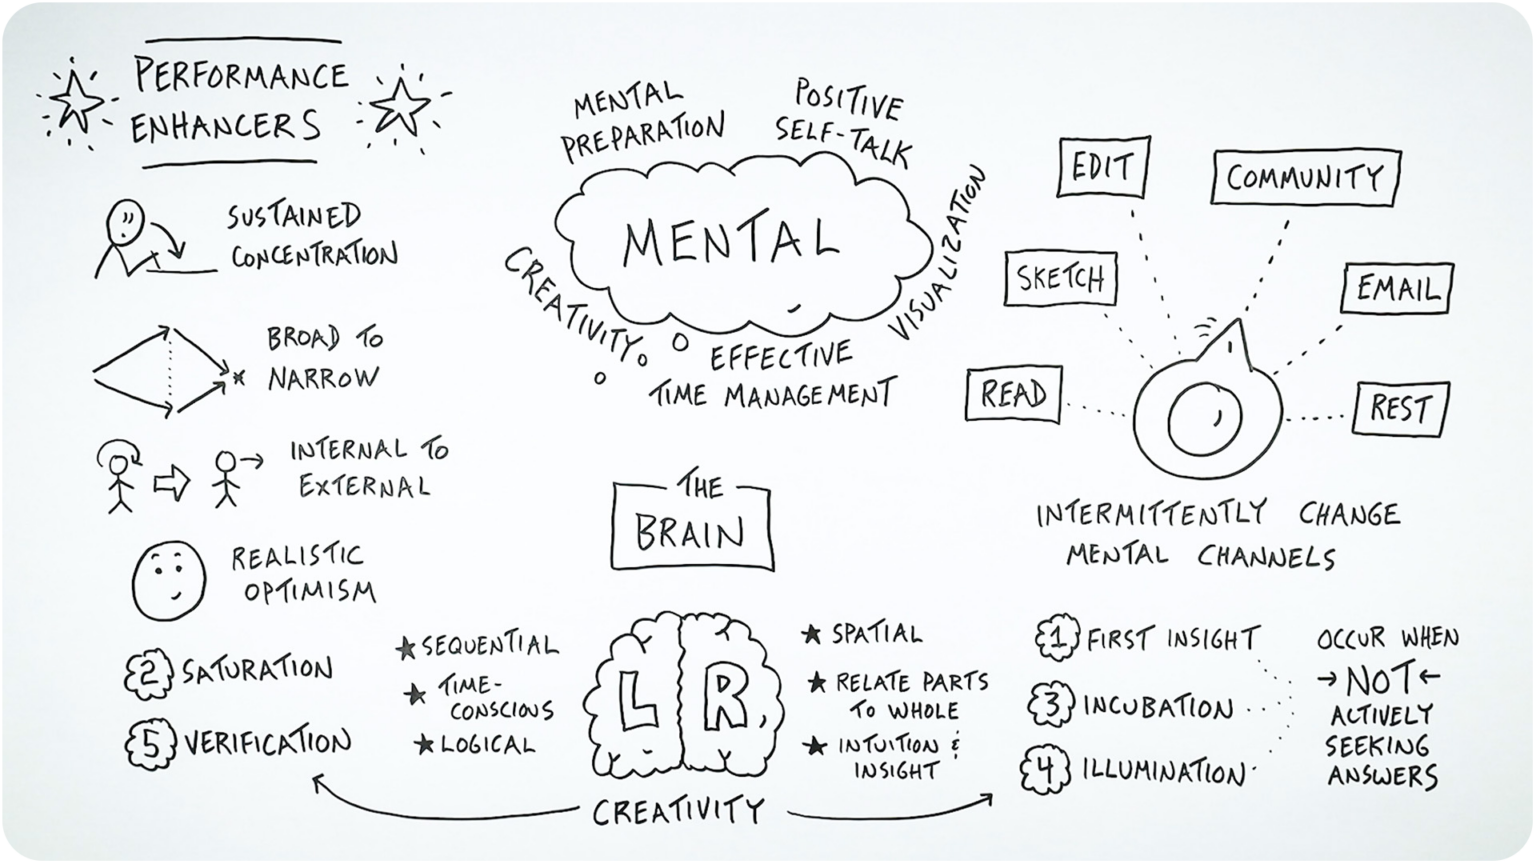 PERFORMANCE
ENHANCERS
SUSTAINED
CONCENTRATION
BROAD TO
NARROW
INTERNAL TO
EXTERNAL
REALISTIC
OPTIMISM
MENTAL
PREPARATION
POSITIVE
SELF-TALK
MENTAL
VISUALIZATION
CREATIVITY
EFFECTIVE
TIME MANAGEMENT
EDIT
COMMUNITY
SKETCH
EMAIL
READ
REST
INTERMITTENTLY CHANGE
MENTAL CHANNELS
THE
BRAIN
2 SATURATION
5 VERIFICATION
★ SEQUENTIAL
★ TIME-
CONSCIOUS
★ LOGICAL
L R
★ SPATIAL
★ RELATE PARTS
TO WHOLE
★ INTUITION &
INSIGHT
CREATIVITY
1 FIRST INSIGHT
3 INCUBATION
4 ILLUMINATION
OCCUR WHEN
→NOT←
ACTIVELY
SEEKING
ANSWERS